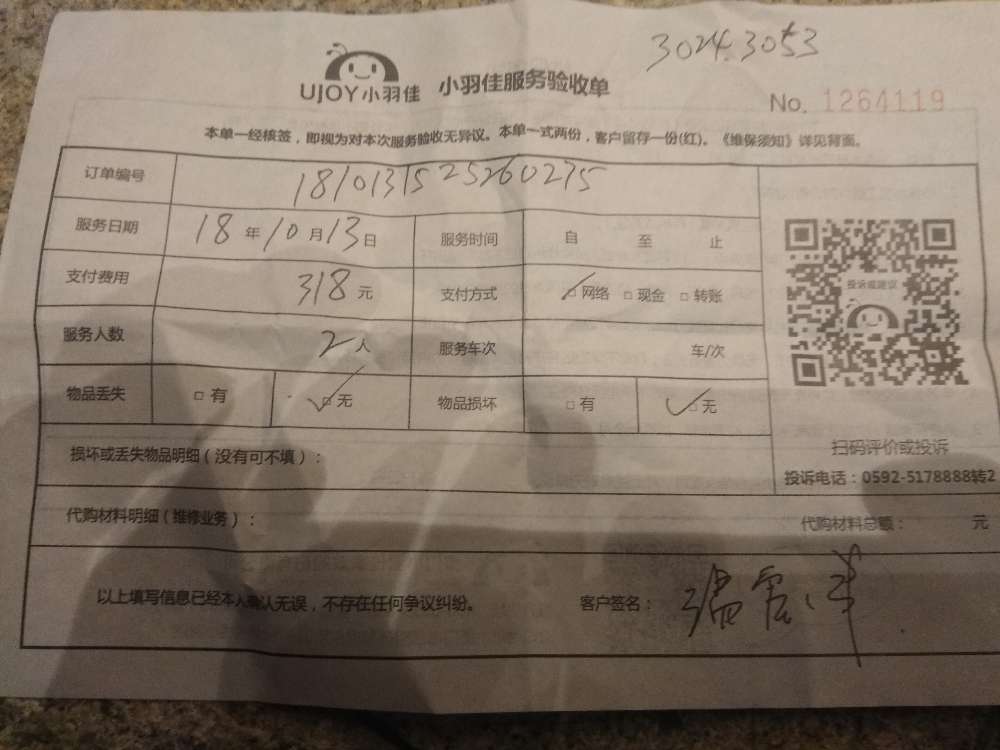 3024.3053
UJOY小羽佳 小羽佳服务验收单
No. 1264119
本单一经核签，即视为对本次服务验收无异议。本单一式两份，客户留存一份(红)。《维保须知》详见背面。
订单编号 1810131525260275
服务日期 18年10月13日 服务时间 自 至 止
支付费用 318元 支付方式 ☑网络 □现金 □转账
投诉或建议
服务人数 2人 服务车次 车/次
物品丢失 □有 ☑无 物品损坏 □有 ☑无
扫码评价或投诉
损坏或丢失物品明细（没有可不填）：
投诉电话：0592-5178888转2
代购材料明细（维修业务）： 代购材料总额： 元
以上填写信息已经本人确认无误，不存在任何争议纠纷。 客户签名：